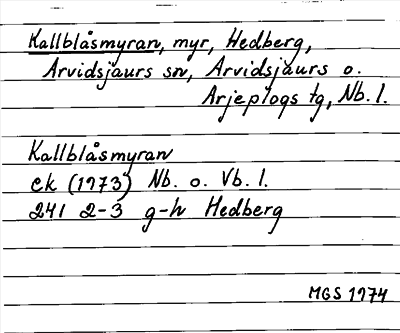 Kallblåsmyran, myr, Hedberg,
Arvidsjaurs sn, Arvidsjaurs o.
Arjeplogs tg, Nb. l.
Kallblåsmyran
ek (1973) Nb. o. Vb. l.
241 2-3 g-h Hedberg
MGS 1974